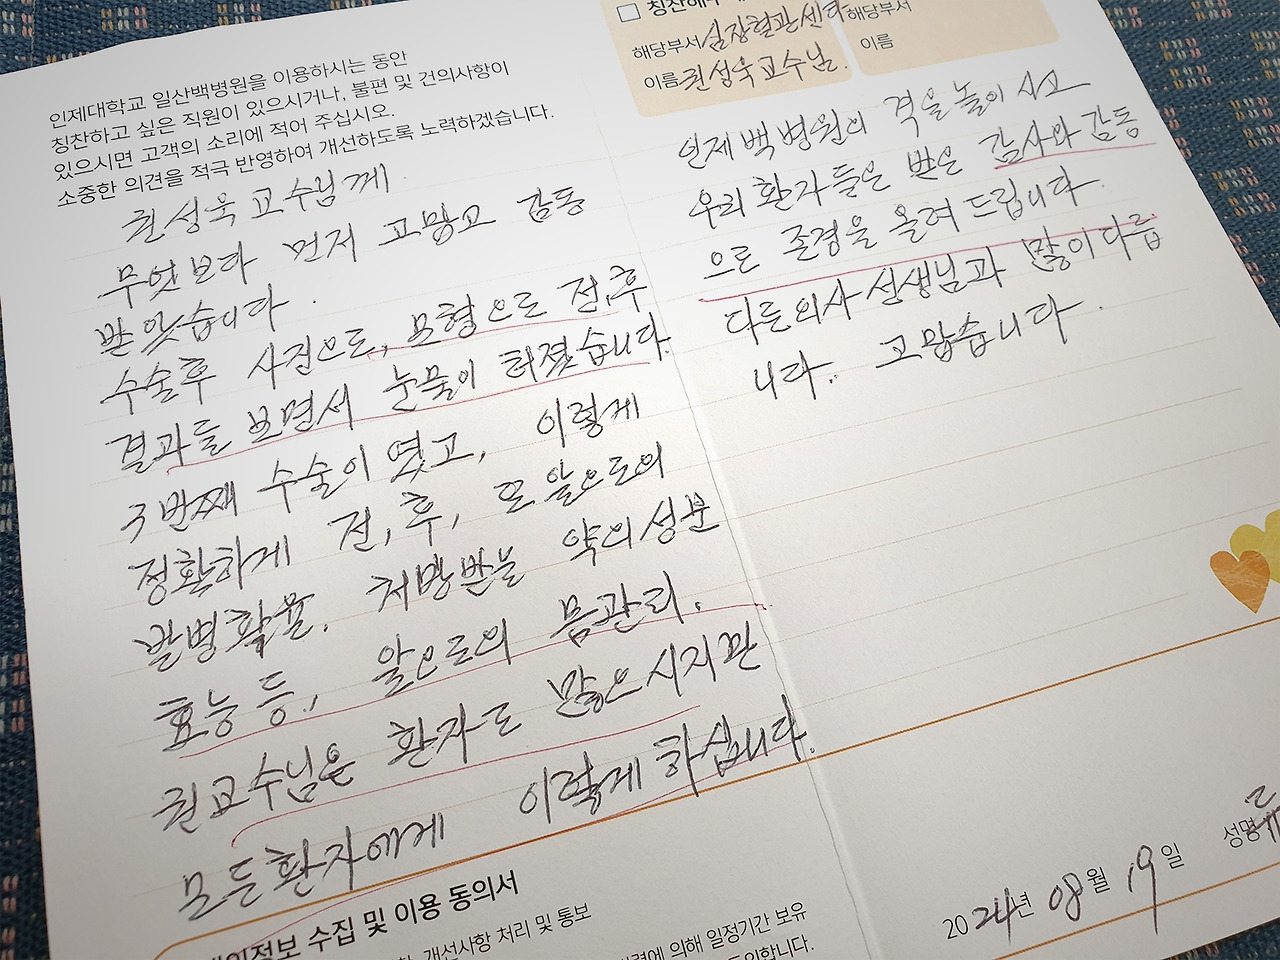 인제대학교 일산백병원을 이용하시는 동안
칭찬하고 싶은 직원이 있으시거나, 불편 및 건의사항이
있으시면 고객의 소리에 적어 주십시오.
소중한 의견을 적극 반영하여 개선하도록 노력하겠습니다.
권성욱 교수님께
무엇보다 먼저 고맙고 감동
받았습니다.
수술후 사진으로, 모형으로 전,후
결과들 보면서 눈물이 터졌습니다.
3번째 수술이 였고, 이렇게
정확하게 전,후, 모알으로의
발병확율, 처방받는 약의성분
효능 등, 앞으로의 몸관리.
권교수님은 환자도 많으시지만
모든환자에게 이렇게 하십니다.
수집 및 이용 동의서
개선사항 처리 및 통보
의해 일정기간 보유
해당부서 심장혈관센터
이름 권성욱교수님.
해당부서
이름
인제백병원의 격을 높이시고
우리 환자들은 받은 감사와 감동
으로 존경을 올려 드립니다.
다른의사 선생님과 많이다릅
니다. 고맙습니다.
2024년 08월 19일
성명